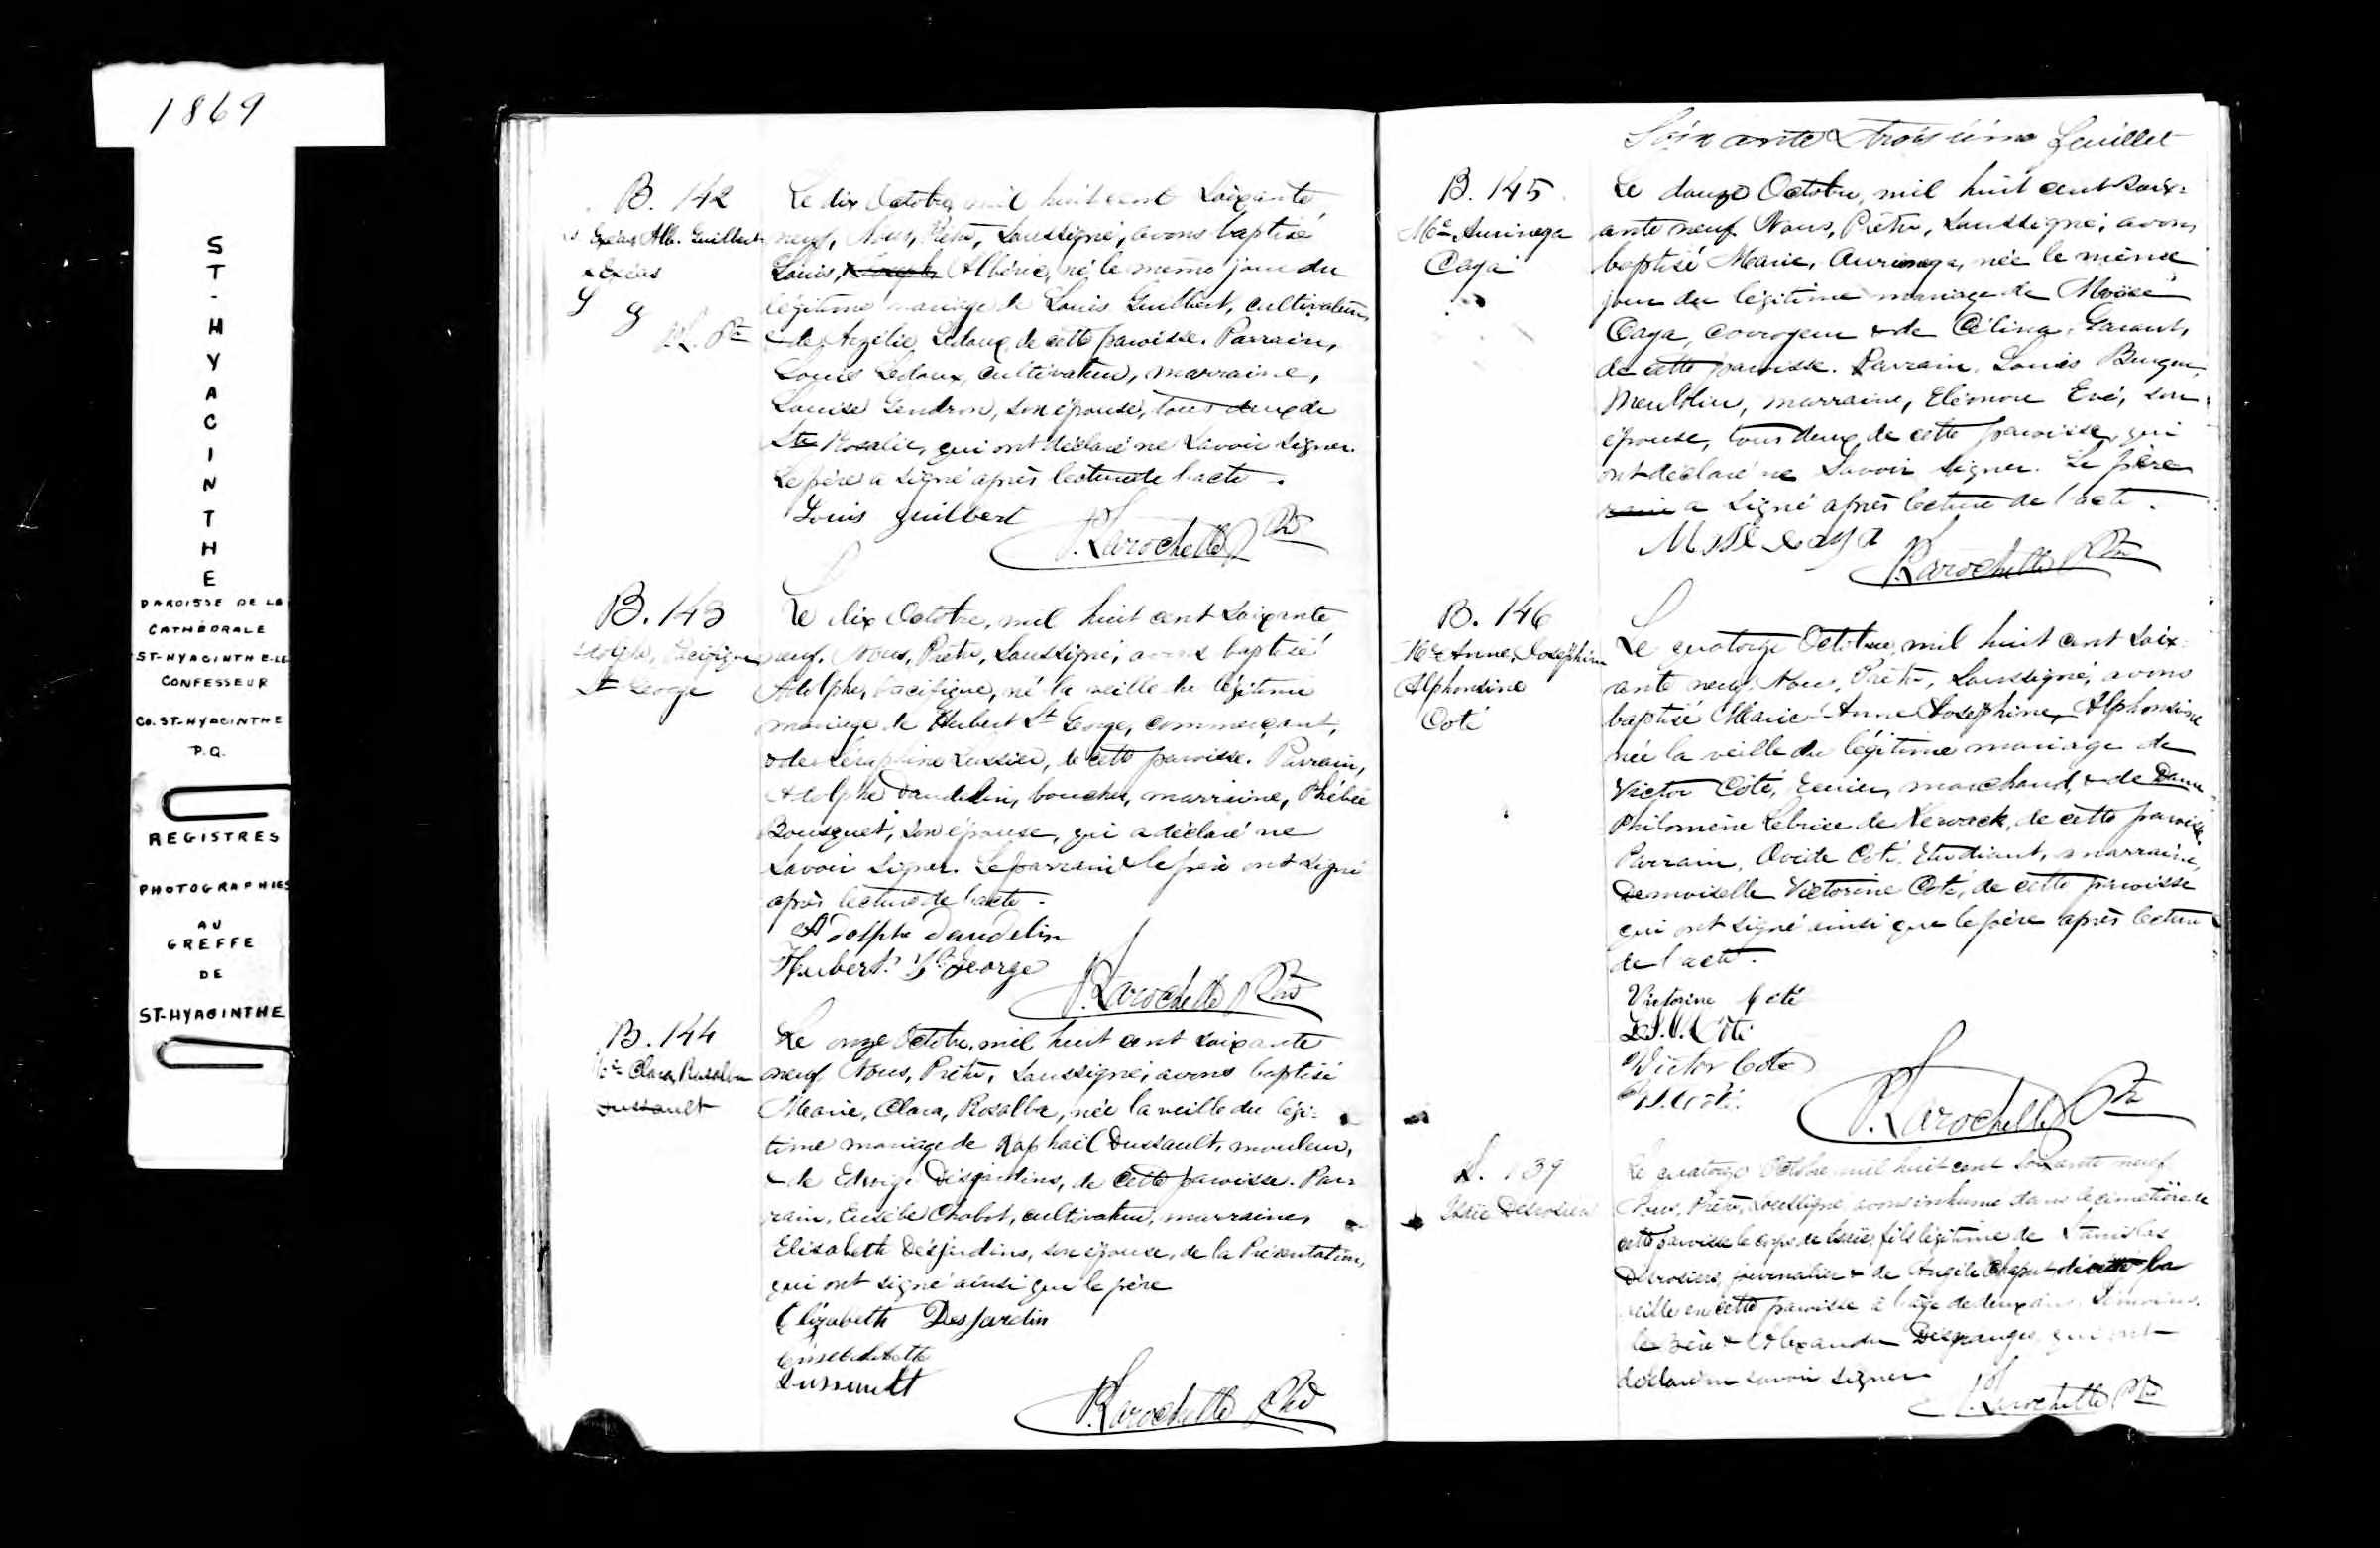 1869
ST-HYACINTHE
PAROISSE DE LA
CATHÉDRALE
ST-HYACINTHE-LE
CONFESSEUR
CO. ST-HYACINTHE
P.Q.
REGISTRES
PHOTOGRAPHIES
AU
GREFFE
DE
ST-HYACINTHE
B. 142
Alb. Guilbert
Le dix Octobre mil huit cent soixante
neuf, Nous, Prêtre, soussigné, avons baptisé
Louis, Joseph, Albéric, né le même jour du
légitime mariage de Louis Guilbert, cultivateur,
& de Azélie Ledoux, de cette paroisse. Parrain,
Louis Ledoux, cultivateur, marraine,
Louise Gendron, son épouse, tous deux de
Ste Rosalie, qui ont déclaré ne savoir signer.
Le père a signé après lecture de l'acte.
Louis Guilbert
P. Larochelle Ptre
B. 143
Adolphe, Pacifique
St George
Le dix Octobre, mil huit cent soixante
neuf, Nous, Prêtre, soussigné, avons baptisé
Adolphe, Pacifique, né la veille du légitime
mariage de Hubert St George, commerçant,
& de Séraphine Lussier, de cette paroisse. Parrain,
Adolphe Dandelin, boucher, marraine, Phébée
Bousquet, son épouse, qui a déclaré ne
savoir signer. Le parrain & le père ont signé
après lecture de l'acte.
Adolphe Dandelin
Hubert St George
P. Larochelle Ptre
B. 144
Mie Clara, Rosalba
Dussault
Le onze Octobre, mil huit cent soixante
neuf Nous, Prêtre, soussigné, avons baptisé
Marie, Clara, Rosalba, née la veille du légi-
time mariage de Raphaël Dussault, mouleur,
& de Edwige Desjardins, de cette paroisse. Par-
rain, Eusèbe Chabot, cultivateur, marraine,
Elisabeth Desjardins, son épouse, de la Présentation,
qui ont signé ainsi que le père
Elizabeth DesJardin
Dussault
P. Larochelle Ptre
Soixante & troisième feuillet
B. 145
Mie Aurinega
Caya
Le douze Octobre, mil huit cent soix-
ante neuf Nous, Prêtre, soussigné, avons
baptisé Marie, Aurinega, née le même
jour du légitime mariage de Moïse
Caya, corroyeur & de Célina
de cette paroisse. Parrain, Louis
marraine, Eléonore son
épouse, tous deux de cette paroisse, qui
ont déclaré ne savoir signer. Le père
a signé après lecture de l'acte.
Caya
P. Larochelle Ptre
B. 146
Mie Anne, Joséphine
Alphonsine
Coté
Le quatorze Octobre, mil huit cent soix-
ante neuf, Nous, Prêtre, soussigné, avons
baptisé Marie-Anne Joséphine, Alphonsine
née la veille du légitime mariage de
Victor Côté, Ecuier, marchand, & de Dame
Philomène de cette paroisse
Parrain, Coté, Etudiant, marraine,
Demoiselle Victorine Coté, de cette paroisse
qui ont signé ainsi que le père après lecture
de l'acte.
Victorine Coté
Coté
Victor Cote
P. Larochelle Ptre
S. 139
Desrosiers
Le quatorze Octobre mil huit cent soixante neuf
Nous, Prêtre, soussigné, avons inhumé dans le cimetière de
cette paroisse le corps de fils légitime de Stanislas
Desrosiers, journalier & de Angèle décédé la
veille en cette paroisse à l'âge de deux ans. Témoins.
le père & Alexandre qui ont
déclaré ne savoir signer
P. Larochelle Ptre